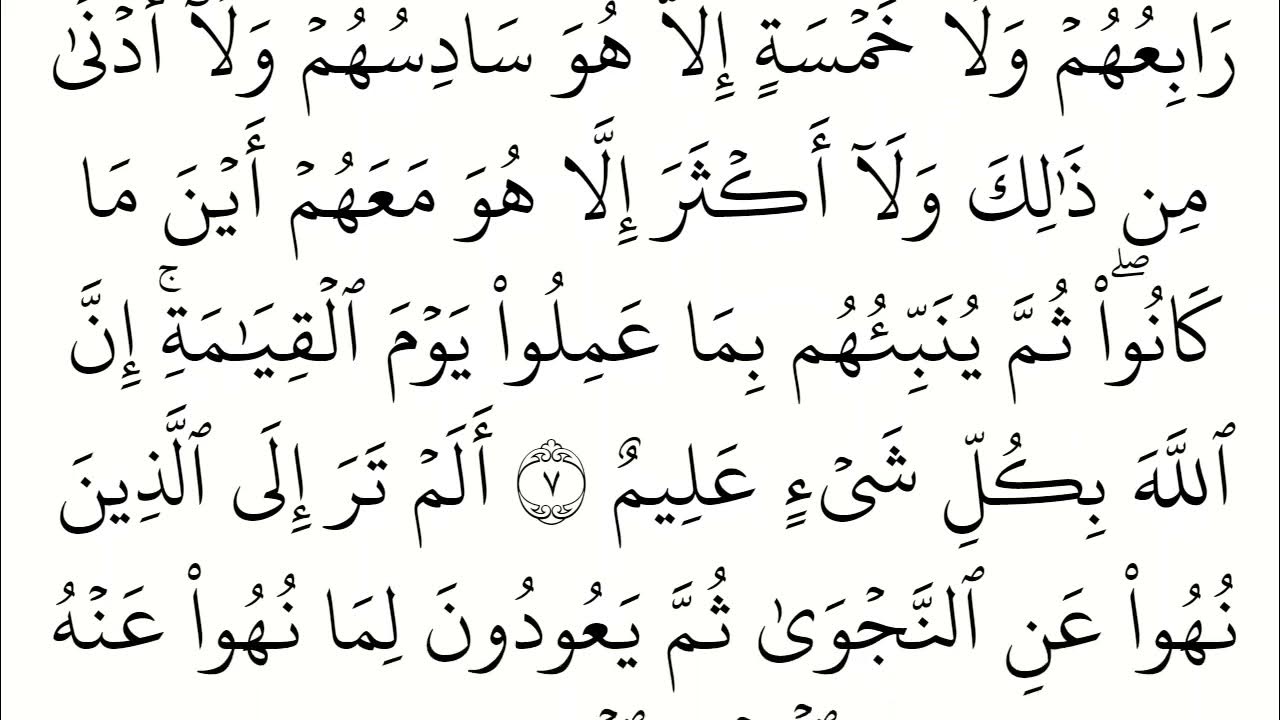 رَابِعُهُمۡ وَلَا خَمۡسَةٍ إِلَّا هُوَ سَادِسُهُمۡ وَلَآ أَدۡنَىٰ
مِن ذَٰلِكَ وَلَآ أَكۡثَرَ إِلَّا هُوَ مَعَهُمۡ أَيۡنَ مَا
كَانُواْۖ ثُمَّ يُنَبِّئُهُم بِمَا عَمِلُواْ يَوۡمَ ٱلۡقِيَٰمَةِۚ إِنَّ
ٱللَّهَ بِكُلِّ شَيۡءٍ عَلِيمٌ ٧ أَلَمۡ تَرَ إِلَى ٱلَّذِينَ
نُهُواْ عَنِ ٱلنَّجۡوَىٰ ثُمَّ يَعُودُونَ لِمَا نُهُواْ عَنۡهُ